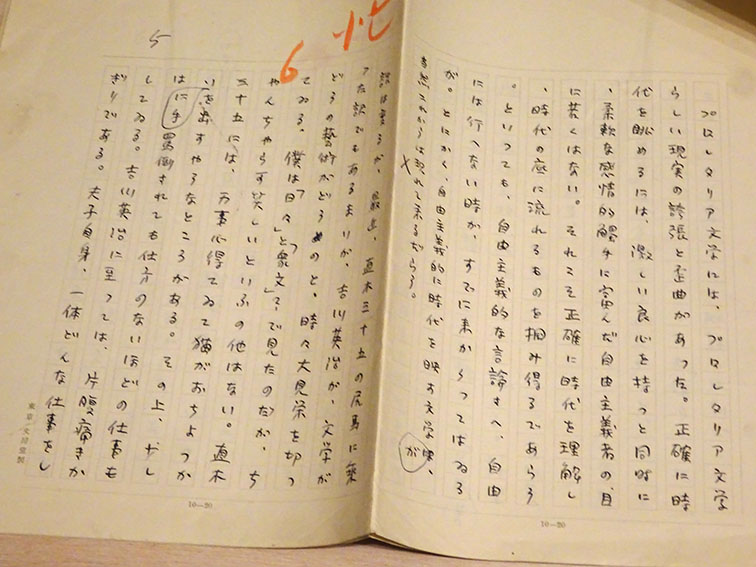 プロレタリア文学には、プロレタリア文学
らしい現実の誇張と歪曲があった。正確に時
代を眺めるには、激しい良心を持つと同時に
、柔軟な感情的觸手に富んだ自由主義者の目
に若くはない。それこそ正確に時代を理解し
、時代の底に流れるものを掴み得るであらう
。といっても、自由主義的な言論さへ、自由
には行へない時が、すでに来かゝってはゐる
が。とにかく、自由主義的に時代を映す文学が、
当然これからは現れて来るだらう。
10—20
5
6
忙
説は更るが、最近、直木三十五の尻馬に乗
った訳でもあるまいが、吉川英治が、文学が
どうの藝術がどうのと、時々大見栄を切っ
てゐる。僕は「日々」と「衆文」とで見たのだが、ち
ゃんちゃらを笑しいといふの他はない。直木
三十五には、万事心得てゐて猫がおちょっか
いを出すやうなところがある。その上、少し
は罵倒されても仕方のないほどの仕事も
してゐる。吉川英治に至っては、片腹痛きか
ぎりである。夫子自身、一体どんな仕事をし
10—20